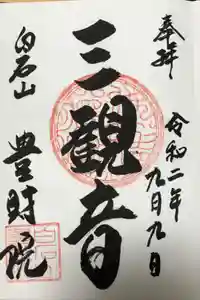 奉拝
令和二年
九月九日
三観音
白石山
豊財院